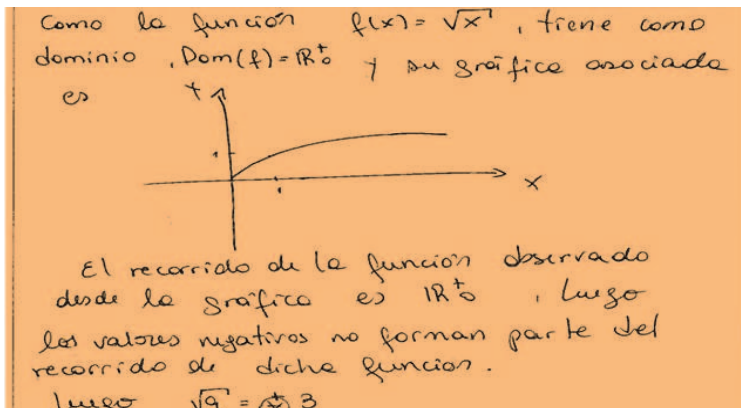 Como la función f(x) = √x , tiene como
dominio , Dom(f) = ℝ⁺₀ y su gráfica asociada
es
Y
1
1
X
El recorrido de la función observado
desde la gráfica es ℝ⁺₀ , luego
los valores negativos no forman parte del
recorrido de dicha funcion.
luego √9 = 3